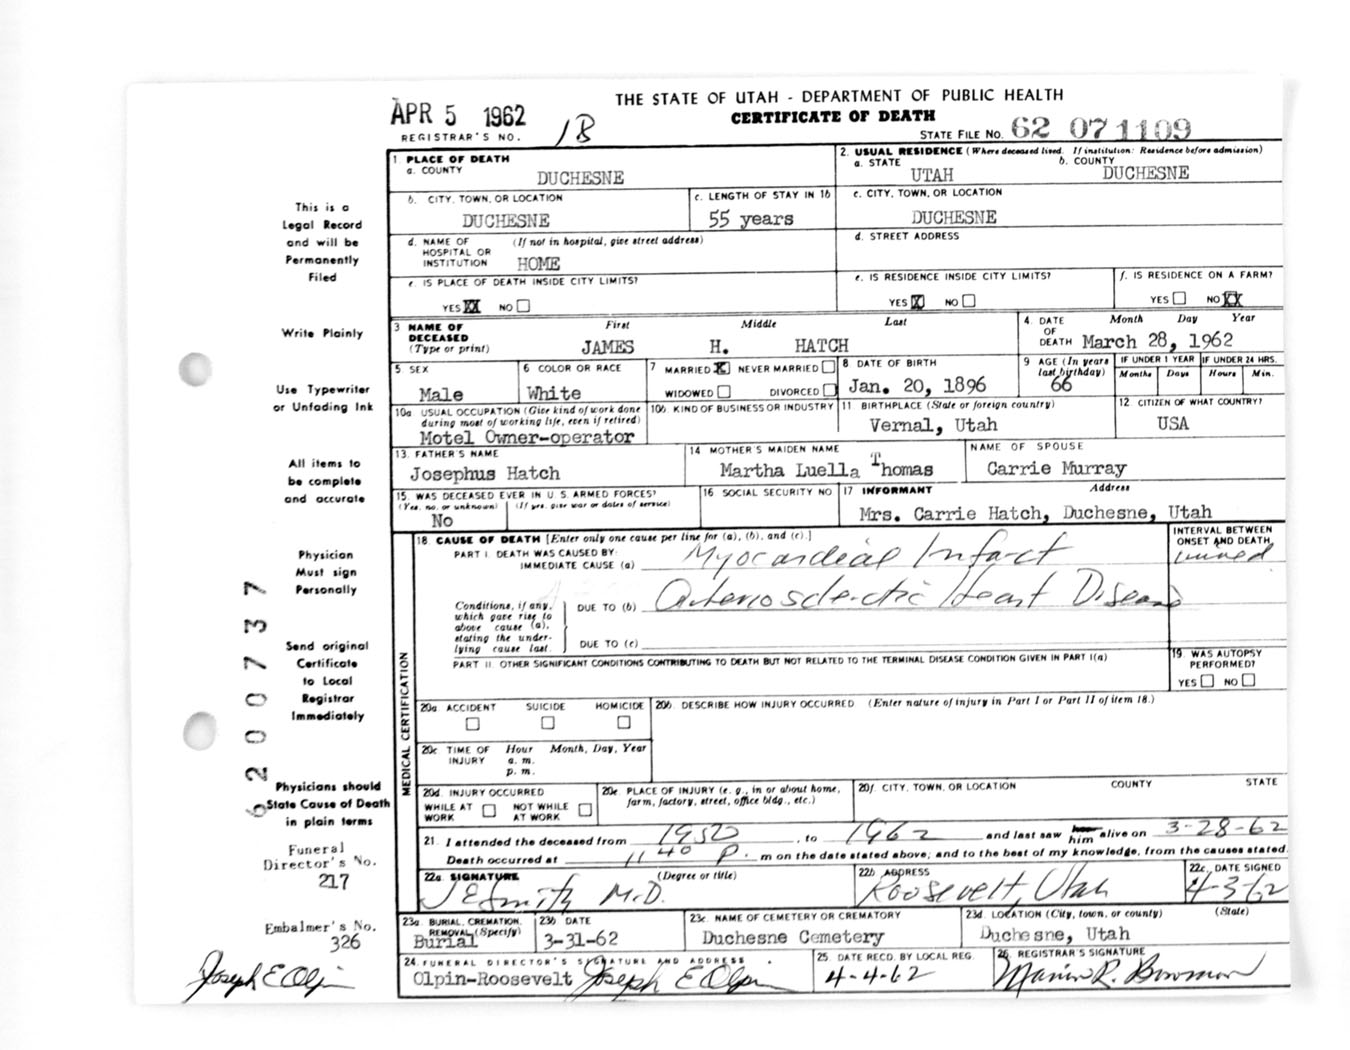 THE STATE OF UTAH - DEPARTMENT OF PUBLIC HEALTH
APR 5 1962
CERTIFICATE OF DEATH
REGISTRAR'S NO. 18
STATE FILE NO. 62 07 1109
1. PLACE OF DEATH
a. COUNTY
DUCHESNE
2. USUAL RESIDENCE (Where deceased lived. If institution: Residence before admission)
a. STATE b. COUNTY
UTAH DUCHESNE
b. CITY, TOWN, OR LOCATION
DUCHESNE
c. LENGTH OF STAY IN 1b
55 years
c. CITY, TOWN, OR LOCATION
DUCHESNE
d. NAME OF HOSPITAL OR INSTITUTION (If not in hospital, give street address)
HOME
d. STREET ADDRESS
e. IS PLACE OF DEATH INSIDE CITY LIMITS?
YES XX NO
e. IS RESIDENCE INSIDE CITY LIMITS?
YES X NO
f. IS RESIDENCE ON A FARM?
YES NO XX
3 NAME OF DECEASED (Type or print)
First Middle Last
JAMES H. HATCH
4. DATE OF DEATH
Month Day Year
March 28, 1962
5. SEX
Male
6 COLOR OR RACE
White
7 MARRIED X NEVER MARRIED
WIDOWED DIVORCED
8 DATE OF BIRTH
Jan. 20, 1896
9 AGE (In years last birthday)
66
IF UNDER 1 YEAR
Months Days
IF UNDER 24 HRS.
Hours Min.
10a USUAL OCCUPATION (Give kind of work done during most of working life, even if retired)
Motel Owner-operator
10b. KIND OF BUSINESS OR INDUSTRY
11 BIRTHPLACE (State or foreign country)
Vernal, Utah
12 CITIZEN OF WHAT COUNTRY?
USA
13. FATHER'S NAME
Josephus Hatch
14 MOTHER'S MAIDEN NAME
Martha Luella Thomas
NAME OF SPOUSE
Carrie Murray
15. WAS DECEASED EVER IN U.S. ARMED FORCES?
(Yes, no, or unknown) (If yes, give war or dates of service)
No
16 SOCIAL SECURITY NO
17 INFORMANT Address
Mrs. Carrie Hatch, Duchesne, Utah
18. CAUSE OF DEATH [Enter only one cause per line for (a), (b), and (c).]
PART I. DEATH WAS CAUSED BY:
IMMEDIATE CAUSE (a) Myocardial Infarct
INTERVAL BETWEEN ONSET AND DEATH
Conditions, if any, which gave rise to above cause (a), stating the underlying cause last.
DUE TO (b) Arteriosclerotic Heart Disease
DUE TO (c)
PART II. OTHER SIGNIFICANT CONDITIONS CONTRIBUTING TO DEATH BUT NOT RELATED TO THE TERMINAL DISEASE CONDITION GIVEN IN PART I(a)
19. WAS AUTOPSY PERFORMED?
YES NO
MEDICAL CERTIFICATION
20a ACCIDENT SUICIDE HOMICIDE
20b. DESCRIBE HOW INJURY OCCURRED (Enter nature of injury in Part I or Part II of item 18.)
20c TIME OF INJURY
Hour Month, Day, Year
a. m.
p. m.
20d. INJURY OCCURRED
WHILE AT WORK NOT WHILE AT WORK
20e. PLACE OF INJURY (e. g., in or about home, farm, factory, street, office bldg., etc.)
20f. CITY, TOWN, OR LOCATION COUNTY STATE
21. I attended the deceased from 1950, to 1962 and last saw her him alive on 3-28-62
Death occurred at 11 40 P. m on the date stated above; and to the best of my knowledge, from the causes stated.
22a. SIGNATURE (Degree or title)
JE Smith M.D.
22b ADDRESS
Roosevelt, Utah
22c. DATE SIGNED
4-3-62
23a BURIAL, CREMATION, REMOVAL (Specify)
Burial
23b DATE
3-31-62
23c. NAME OF CEMETERY OR CREMATORY
Duchesne Cemetery
23d. LOCATION (City, town, or county) (State)
Duchesne, Utah
24. FUNERAL DIRECTOR'S SIGNATURE AND ADDRESS
Olpin-Roosevelt Joseph E Olpin
25. DATE RECD. BY LOCAL REG.
4-4-62
26. REGISTRAR'S SIGNATURE
This is a
Legal Record
and will be
Permanently
Filed
Write Plainly
Use Typewriter
or Unfading Ink
All items to
be complete
and accurate
Physician
Must sign
Personally
Send original
Certificate
to Local
Registrar
Immediately
Physicians should
State Cause of Death
in plain terms
Funeral
Director's No.
217
Embalmer's No.
326
Joseph E Olpin
62007 37